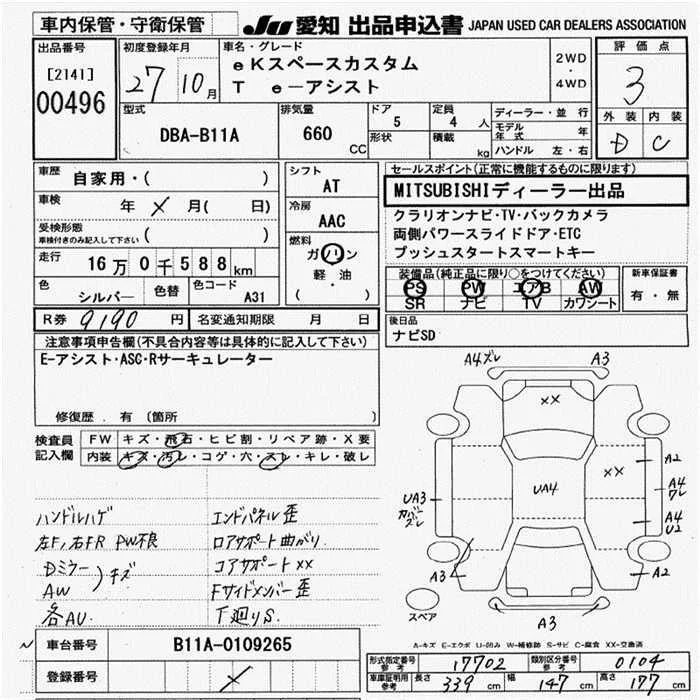 車内保管・守衛保管
JU 愛知 出品申込書 JAPAN USED CAR DEALERS ASSOCIATION
出品番号
[2141]
00496
初度登録年月
27 10月
車名・グレード
eKスペースカスタム
T e-アシスト
2WD
・
4WD
評価点
3
外装 内装
D C
型式
DBA-B11A
排気量
660
CC
ドア
5
形状
定員
4人
積載
kg
ディーラー・並行
モデル年式 年
ハンドル 左・右
車歴
自家用・( )
車検
年 × 月( 日)
受検形態
車検付きのみ記入して下さい ( )
走行 16万0千588km
色
シルバー
色替
色コード
A31
シフト
AT
冷房
AAC
燃料
ガソリン
軽・油
( )
セールスポイント(正常に機能するものに限ります)
MITSUBISHIディーラー出品
クラリオンナビ・TV・バックカメラ
両側パワースライドドア・ETC
プッシュスタートスマートキー
装備品(純正品に限り○をつけてください)
PS PW エアB AW
SR ナビ TV カワシート
新車保証書
有・無
R券 9190 円
名変通知期限 月 日
後日品
ナビSD
注意事項申告欄(不具合内容等は具体的に記入して下さい)
E-アシスト・ASC・Rサーキュレーター
修復歴．有（箇所 ）
検査員
記入欄
FW キズ・飛石・ヒビ割・リペア跡・X要
内装 キズ・汚レ・コゲ・穴・スレ・キレ・破レ
ハンドルハゲ
左F,右FR PW不良
Dミラー
AW
)キズ
各AU.
エンドパネル歪
ロアサポート曲がり
コアサポート××
Fサイドメンバー歪
下廻りS.
A4ズレ
A3
××
××
UA4
UA3
カバーズレ
A2
A4
ワレ
A4
U2
A3
A2
A3
スペア
A-キズ E-エクボ U-凹み W-補修跡 S-サビ C-腐食 XX-交換済
車台番号 B11A-0109265
登録番号 ×
形式指定番号
参考
17702
類別区分番号
参考
0104
車庫証明用
参考
長さ 339 cm 幅 147 cm 高さ 177 cm